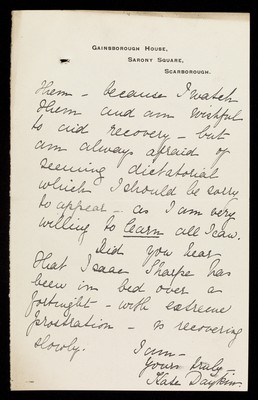 GAINSBOROUGH HOUSE,
SARONY SQUARE,
SCARBOROUGH.
them – because I watch
them and am wishful
to aid recovery – but
am always afraid of
seeming dictatorial
which I should be sorry
to appear – as I am very
willing to learn all I can.
Did you hear
that Isaac Sharpe has
been in bed over a
fortnight – with extreme
prostration – is recovering
slowly.
I am –
Yours truly
Kate Daykin